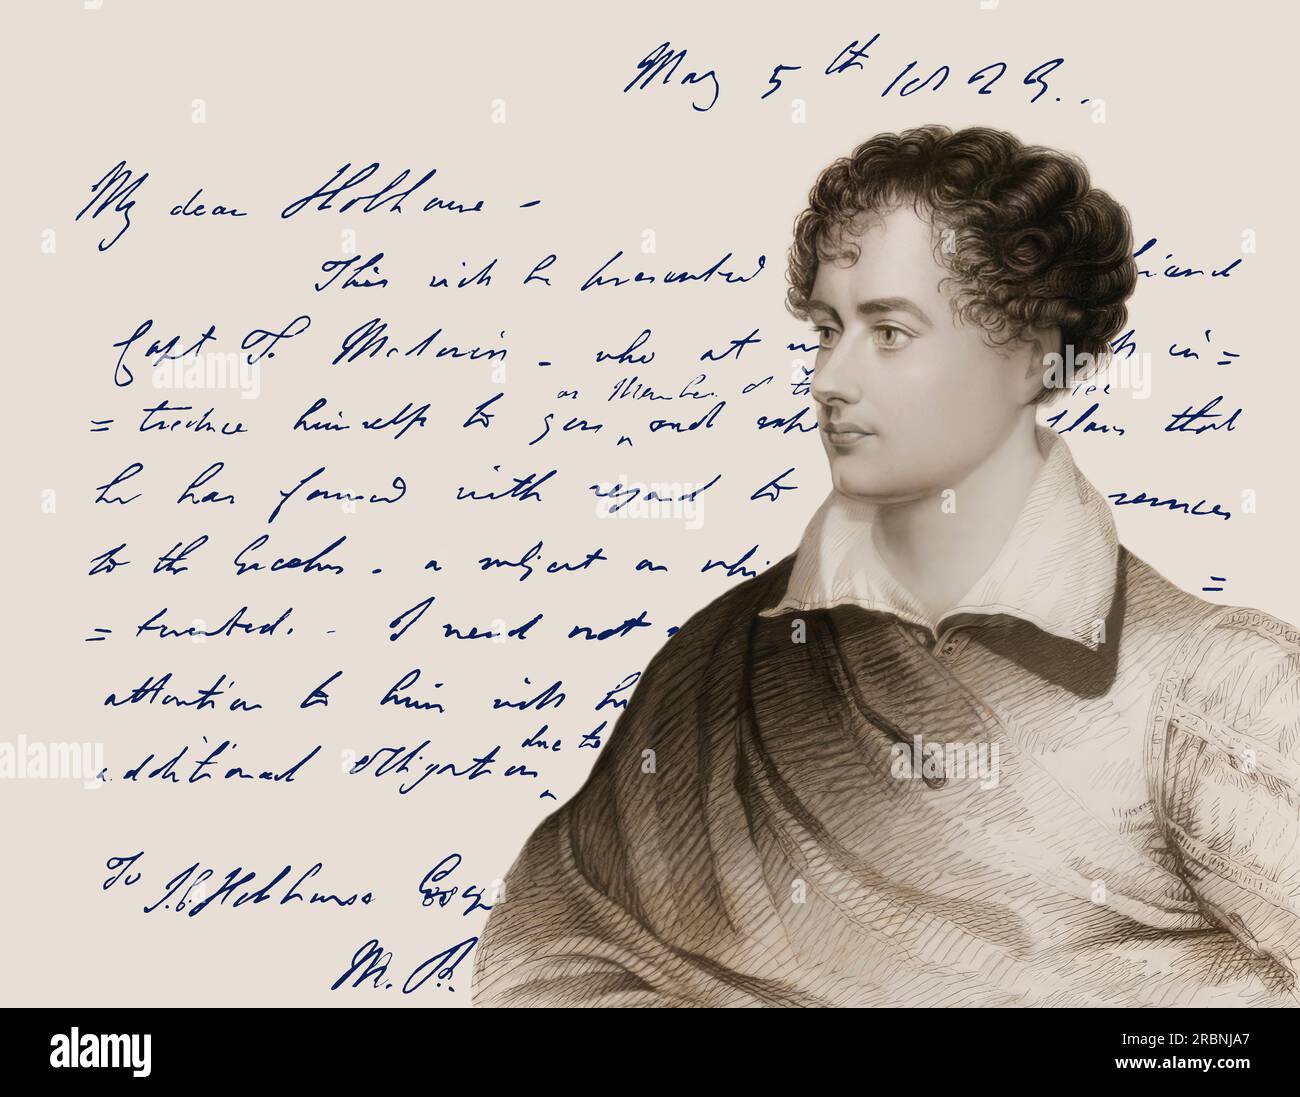 May 5th 1823.
My dear Hobhouse -
This will be presented friend
Capt T. who at in=
as Member of tee
=troduce himself to you and Plans that
he has formed with regard to
to the Greeks. a subject on whi =
=terested. - I need not
attention to him will hi
due to
additional obligation
To J. C. Hobhouse Esqr
M. P.
alamy
Image ID: 2RBNJA7
www.alamy.com